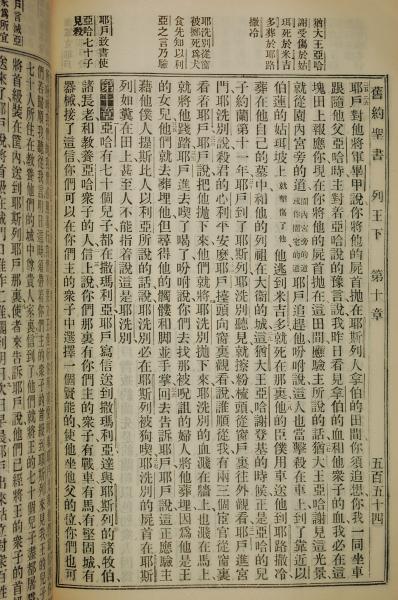 舊約聖書 列王下 第十章 五百五十四
猶大王亞哈
謝受傷於姑
珥死於米吉
多葬於耶路
撒冷
耶洗別從窗
被擲死為犬
食先知以利
亞之言乃驗
耶戶致書使
亞哈七十子
見殺
耶戶對他將軍畢甲說你將他的屍首拋在耶斯列人拿伯的田間你須追思你我一同坐車
跟隨他父亞哈時主對着亞哈說的豫言說我昨日看見拿伯的血和他衆子的血我必在這
塊田上報應你現在你將他的屍首拋在這田間應驗主所說的話猶大王亞哈謝見這光景
就從園內宮旁的道 園內宮旁的道 耶戶追趕他吩咐說這人也當擊殺在車上到了靠近以
伯蓮的姑珥坡上就擊傷了他他逃到米吉多就死在那裏他的臣僕用車送他到耶路撒冷
葬在他自己的墓中和他的列祖在大衛的城這猶大王亞哈謝登基的時候正是亞哈的兒
子約蘭第十一年耶戶到了耶斯列耶洗別聽見就擦粉梳頭從窗戶裏往外觀看耶戶進宮
門耶洗別說殺君的心利平安麼耶戶擡頭向窗裏觀看說誰順從我有兩三個宦官從窗裏
看着耶戶耶戶說把他拋下來他們就將耶洗別拋下來耶洗別的血濺在牆上也濺在馬上
就將他踐踏耶戶進去喫了喝了吩咐說你們去找那被呪詛的婦人將他葬埋因為他是王
的女兒他們就去葬埋他但尋得他的髑髏和脚並手掌回去告訴耶戶耶戶說這正應驗主
藉他僕人提斯比人以利亞所說的話說耶洗別必在耶斯列被狗喫耶洗別的屍首在耶斯
列如糞在田上甚至人不能指着說這是耶洗別
第十章 亞哈有七十個兒子都在撒瑪利亞耶戶寫信送到撒瑪利亞達與耶斯列的諸牧伯
諸長老和教養亞哈衆子的人信上說你們那裏有你們主的衆子有戰車有馬有堅固城有
器械接了這信你們可以在你們主的衆子中選擇一個賢能的使他坐他父的位你們也可